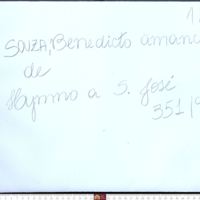 SOUZA, Benedicto Amanc
de
Hymno a S. José
351/9